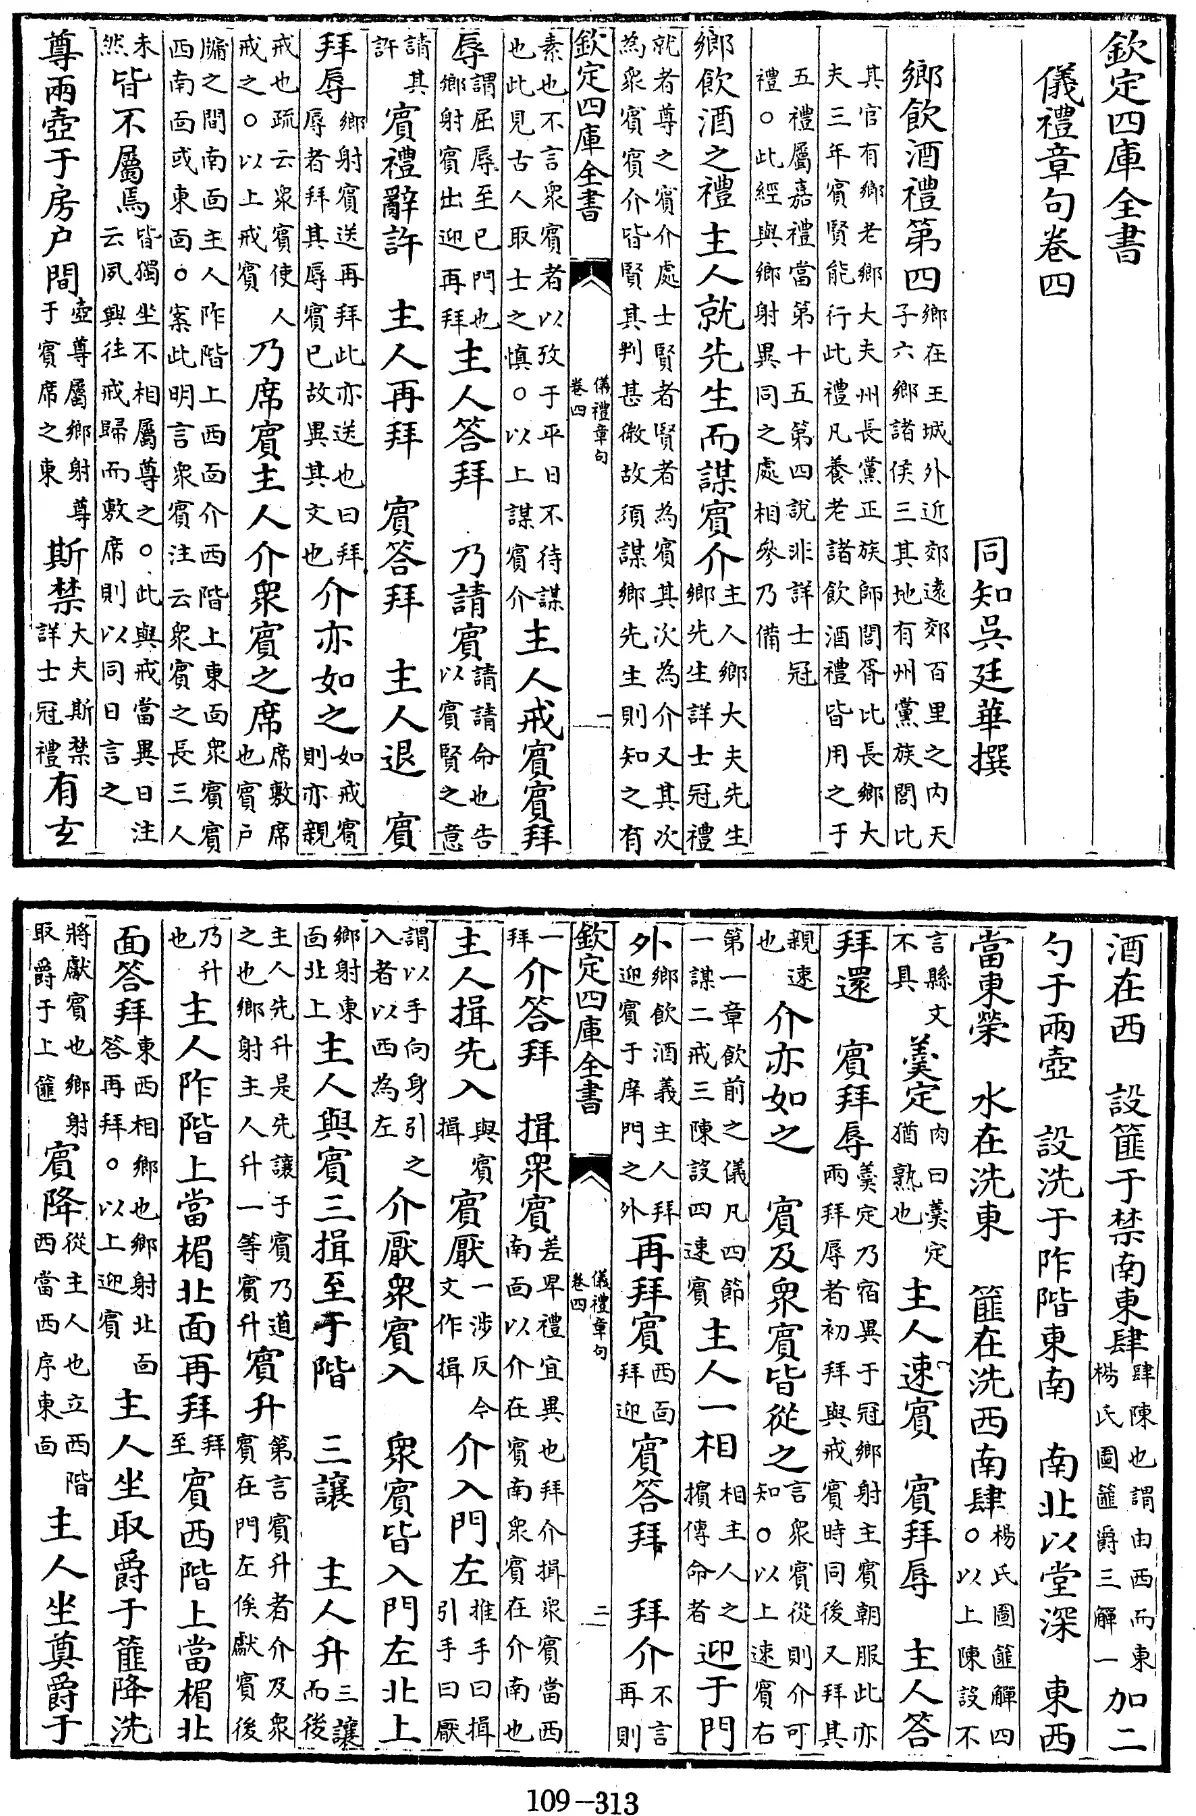 欽定四庫全書
儀禮章句卷四
同知吳廷華撰
鄉飲酒禮第四鄉在王城外近郊逺郊百里之内天子六鄉諸侯三其地有州黨族閭比
其官有鄉老鄉大夫州長黨正族師閭胥比長鄉大夫三年賓賢能行此禮凡養老諸飲酒禮皆用之于
五禮屬嘉禮當第十五第四說非詳士冠禮○此經與鄉射異同之處相參乃備
鄉飲酒之禮主人就先生而謀賓介主人鄉大夫先生鄉先生詳士冠禮
就者尊之賓介處士賢者賢者為賓其次為介又其次為衆賓賓介皆賢其判甚微故須謀鄉先生則知之有
欽定四庫全書 儀禮章句 卷四 一
素也不言衆賓者以攷于平日不待謀也此見古人取士之慎○以上謀賓介主人戒賓賓拜
辱謂屈辱至已門也鄉射賓出迎再拜主人答拜 乃請賓請請命也告以賓賢之意
請其許賓禮辭許 主人再拜 賓答拜 主人退 賓
拜辱鄉射賓送再拜此亦送也曰拜辱者拜其辱賓已故異其文也介亦如之如戒賓則亦親
戒也疏云衆賓使人戒之○以上戒賓乃席賓主人介衆賓之席席敷席也賓户
牖之間南面主人阼階上西面介西階上東面衆賓賓西南面或東面○案此明言衆賓注云衆賓之長三人
未然皆不屬焉皆獨坐不相屬尊之○此與戒當異日注云夙興往戒歸而敷席則以同日言之
尊兩壺于房户間壺尊屬鄉射尊于賓席之東斯禁大夫斯禁詳士冠禮有玄
酒在西 設篚于禁南東肆肆陳也謂由西而東楊氏圖篚爵三觶一加二
勺于兩壺 設洗于阼階東南 南北以堂深 東西
當東榮 水在洗東 篚在洗西南肆楊氏圖篚觶四○以上陳設不
言縣文不具羹定肉曰羹定猶熟也主人速賓 賓拜辱 主人答
拜還 賓拜辱羹定乃宿異于冠鄉射主賓朝服此亦兩拜辱者初拜與戒賓時同後又拜其
親速也介亦如之 賓及衆賓皆從之言衆賓從則介可知○以上速賓右
第一章飲前之儀凡四節一謀二戒三陳設四速賓主人一相相主人之擯傳命者迎于門
外鄉飲酒義主人拜迎賓于庠門之外再拜賓西面拜迎賓答拜 拜介不言再則
欽定四庫全書 儀禮章句 卷四 二
一拜介答拜 揖衆賓差卑禮宜異也拜介揖衆賓當西南面以介在賓南衆賓在介南也
主人揖先入與賓揖賓厭一涉反今文作揖介入門左推手曰揖引手曰厭
謂以手向身引之入者以西為左介厭衆賓入 衆賓皆入門左北上
鄉射東面北上主人與賓三揖至于階 三讓 主人升三讓而後
主人先升是先讓于賓乃道之也鄉射主人升一等賓升賓升第言賓升者介及衆賓在門左俟獻賓後
乃升也主人阼階上當楣北面再拜拜至賓西階上當楣北
面答拜東西相鄉也鄉射北面答再拜○以上迎賓主人坐取爵于篚降洗
將獻賓也鄉射取爵于上篚賓降從主人也立西階西當西序東面主人坐奠爵于
109-313